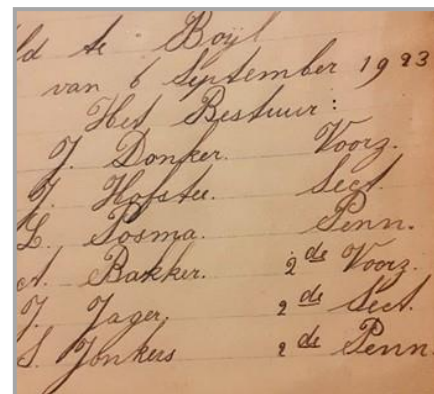 ld te Boijl
van 6 September 1923
Het Bestuur:
J. Donker. Voorz.
J. Hofstee. Sect.
L. Posma. Penn.
A. Bakker. 2de Voorz.
J. Jager. 2de Sect.
S. Jonkers 2de Penn.